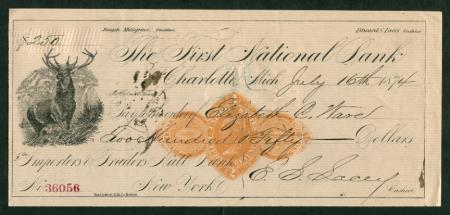 Joseph Musgrave, President. Edward S. Lacey, Cashier
$250
The First National Bank
Charlotte, Mich July 16th 1874
Pay to the order of Elizabeth C. Ward
Two Hundred & Fifty Dollars
To Importers & Traders Natl Bank
No. 36056 New York E. S. Lacey
Cashier